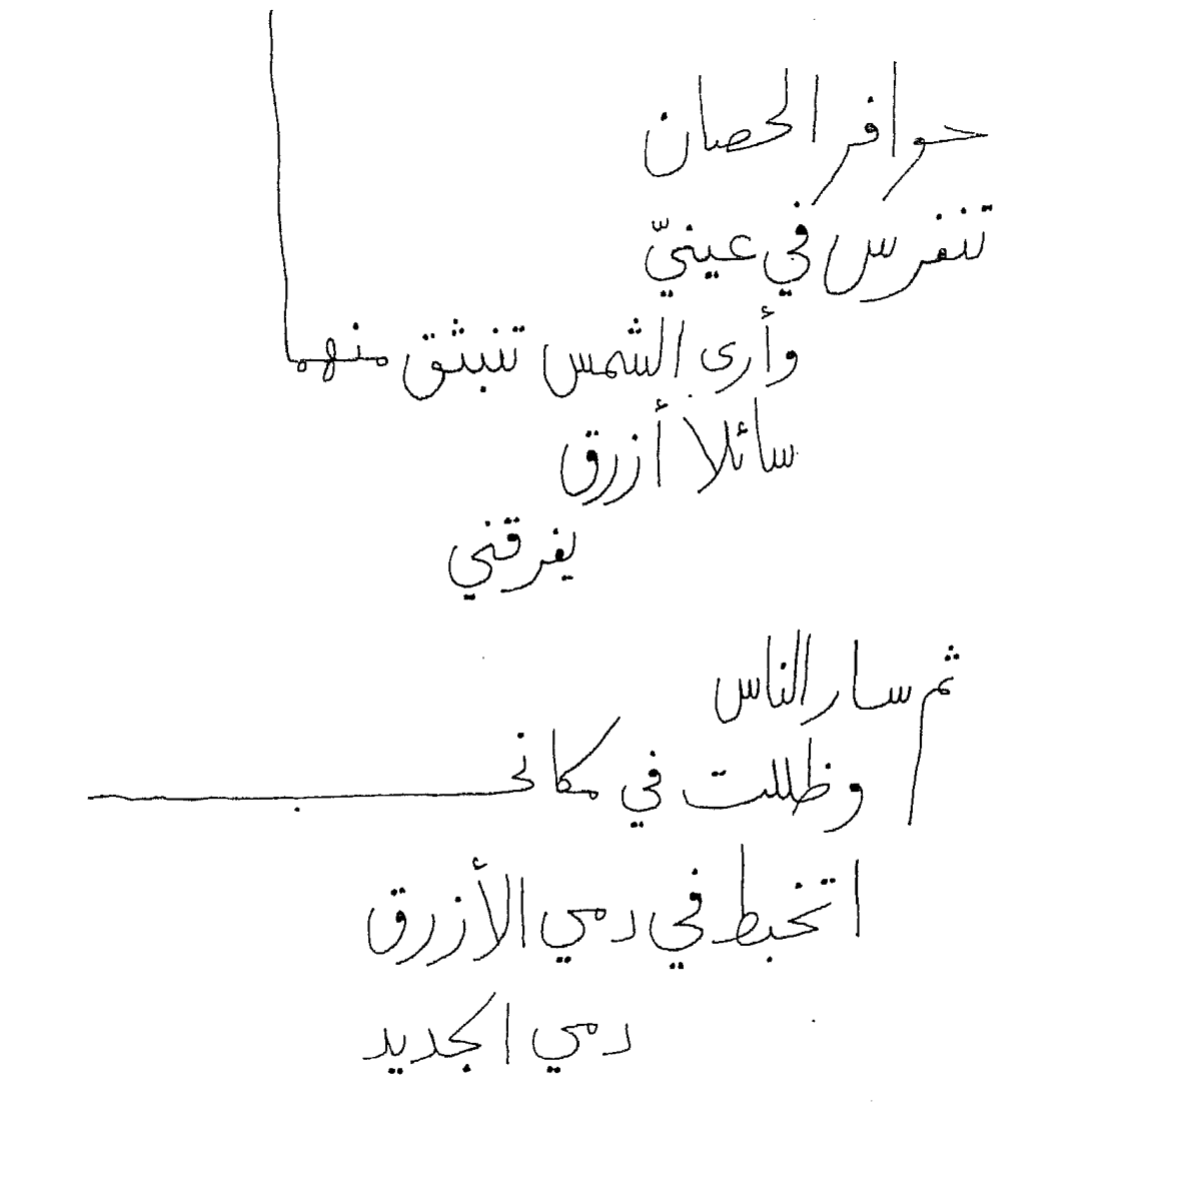 حوافر الحصان
تنفرس في عينيّ
وأرى الشمس تنبثق منهما
سائلا أزرق
يفرقني
ثم سار الناس
وظللت في مكاني
اتخبط في دمي الأزرق
دمي الجديد